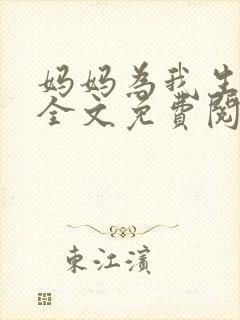 妈妈为我生
全文免费阅
東江濱